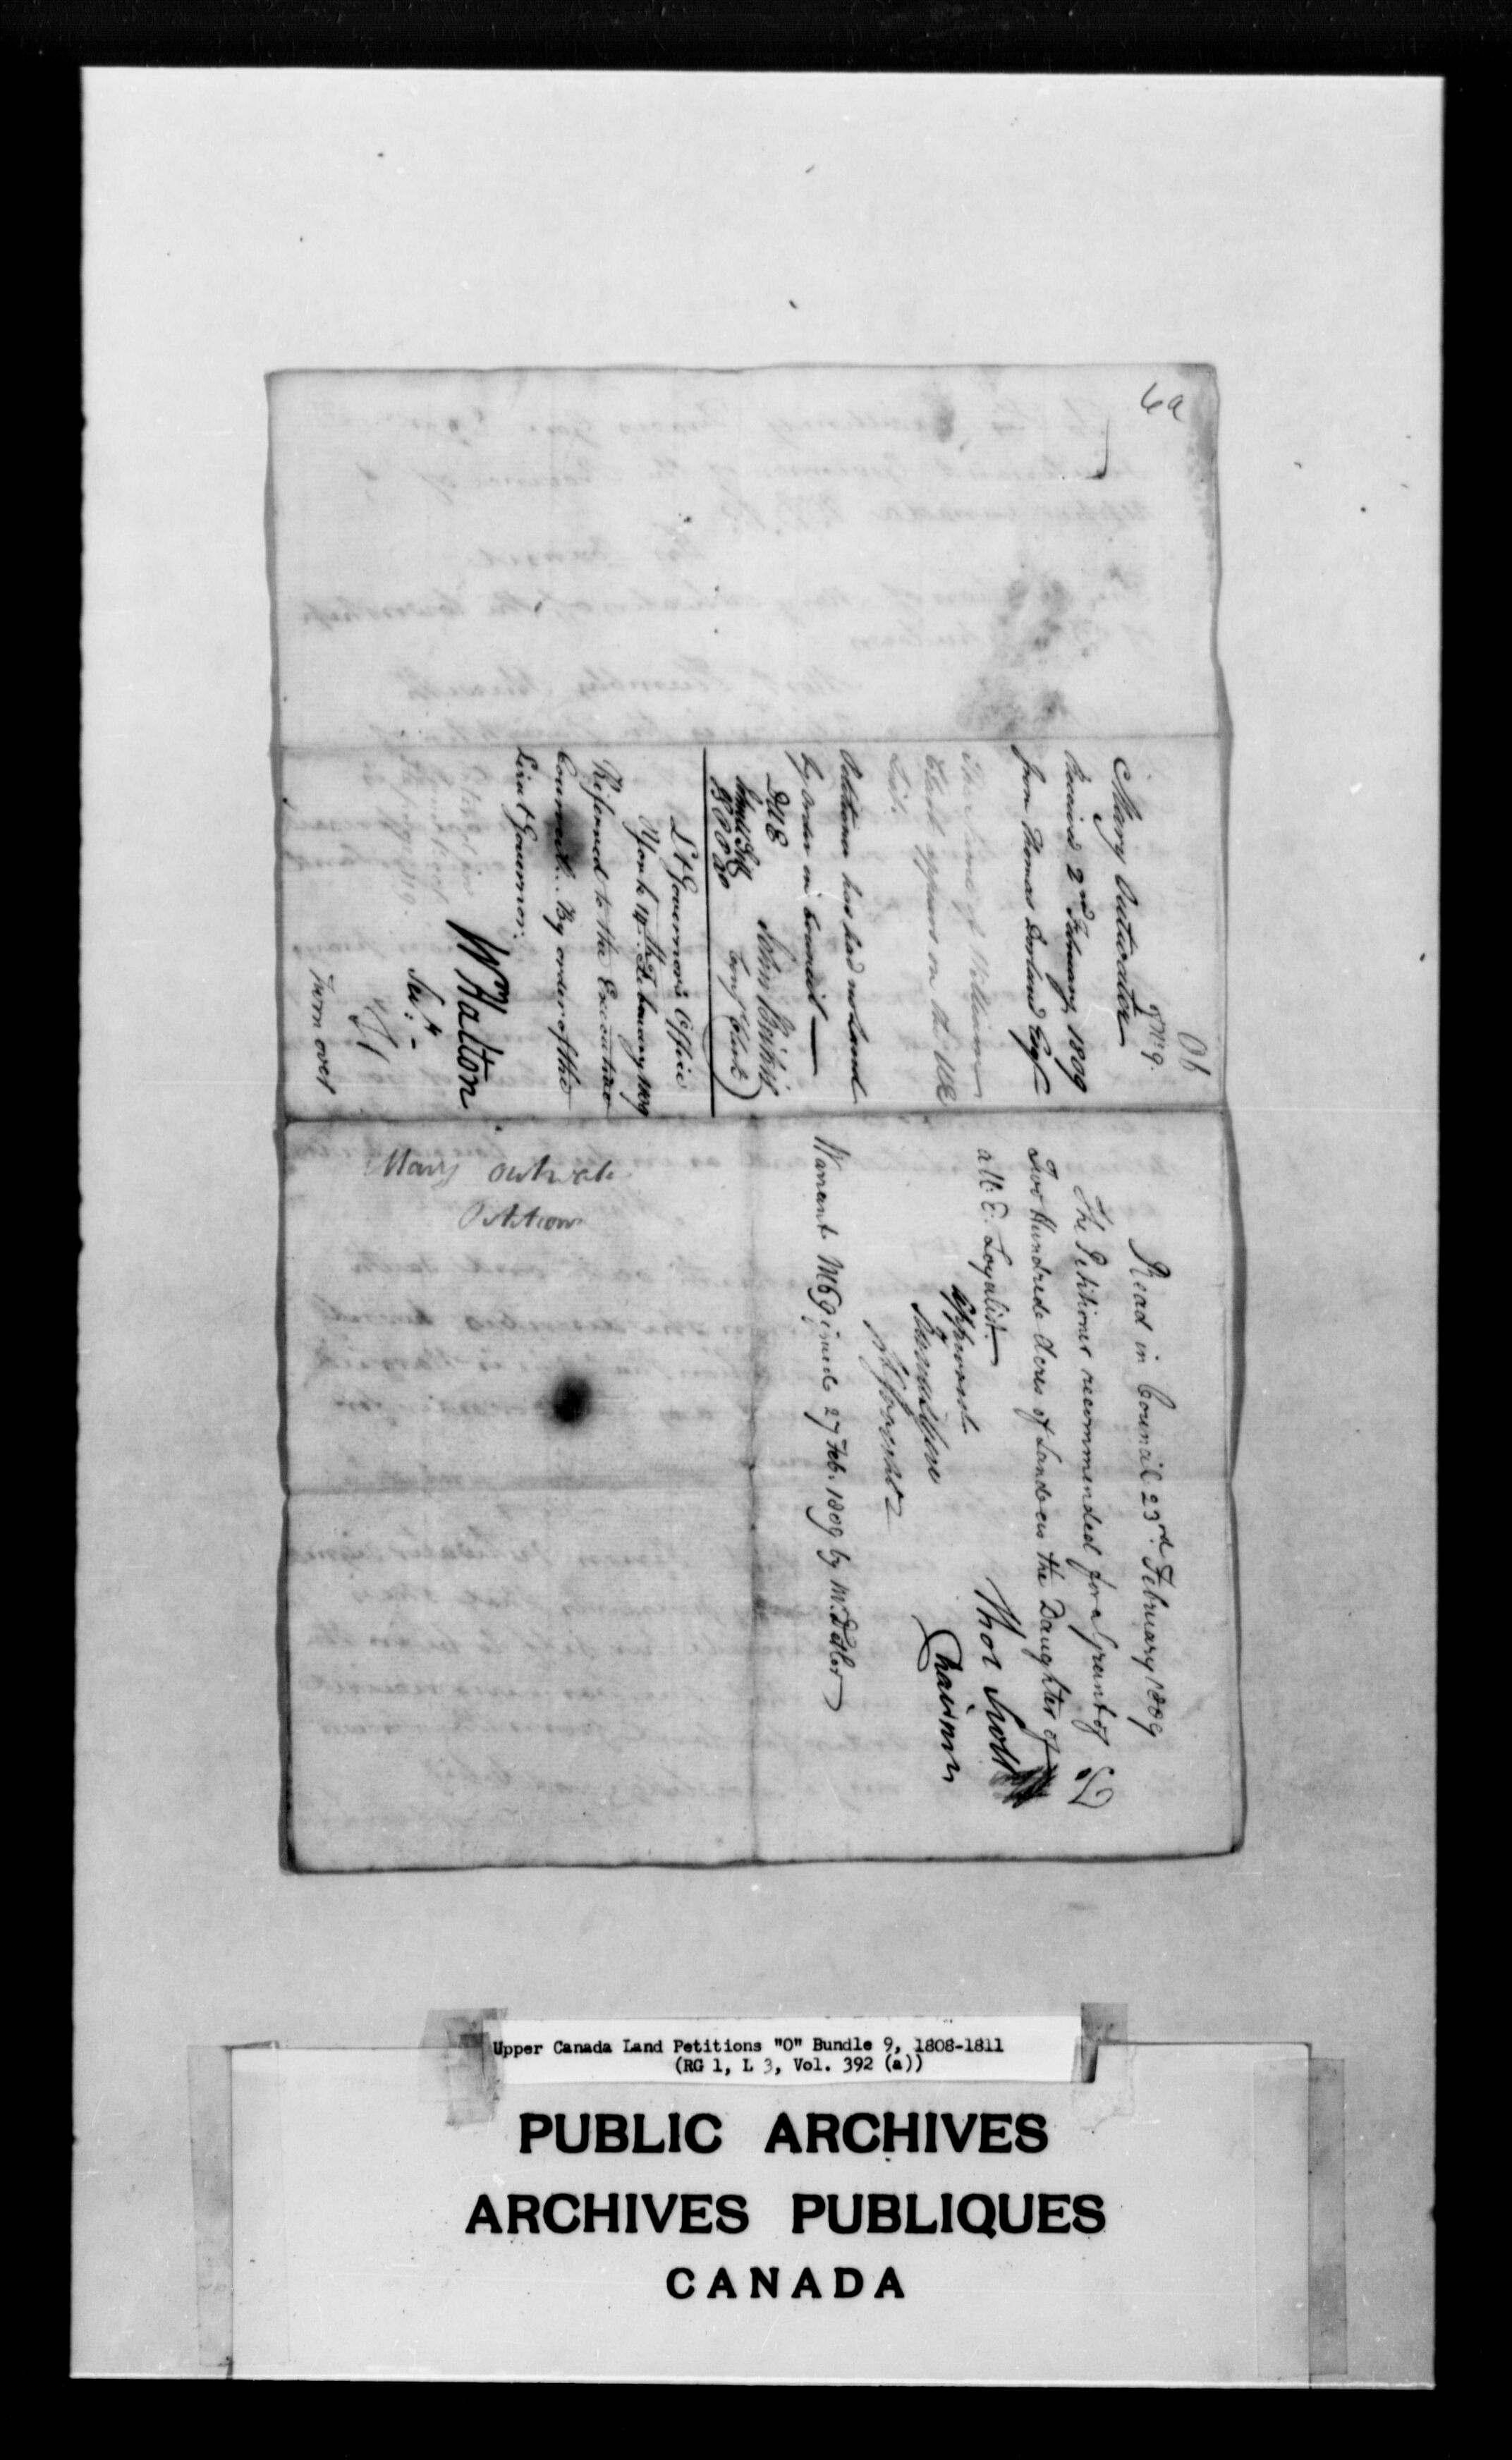 6a
O 6
Mary Outwater
Received 2nd February 1809
from Thomas Dorland Esqr
The name of William
Clark appears on the UE
List.
Petitioner has had no Land
by Order in Council —
John
Lt Governor's Office
York 14th February 1809
Referred to the Executive
Council. By order of the
Lieut Governor.
Wm Halton
Secy.
Turn over
Read in Council 23rd February 1809
The Petitioner recommended for a Grant of
Two Hundred Acres of Land as the Daughter of
a U: E: Loyalist.
Thos Scott
Chairman
approved
Francis Gore
Lt Governor
Warrant issued 27 Feb. 1809 by
Mary outwater
Petition
Upper Canada Land Petitions "O" Bundle 9, 1808-1811
(RG 1, L 3, Vol. 392 (a))
PUBLIC ARCHIVES
ARCHIVES PUBLIQUES
CANADA